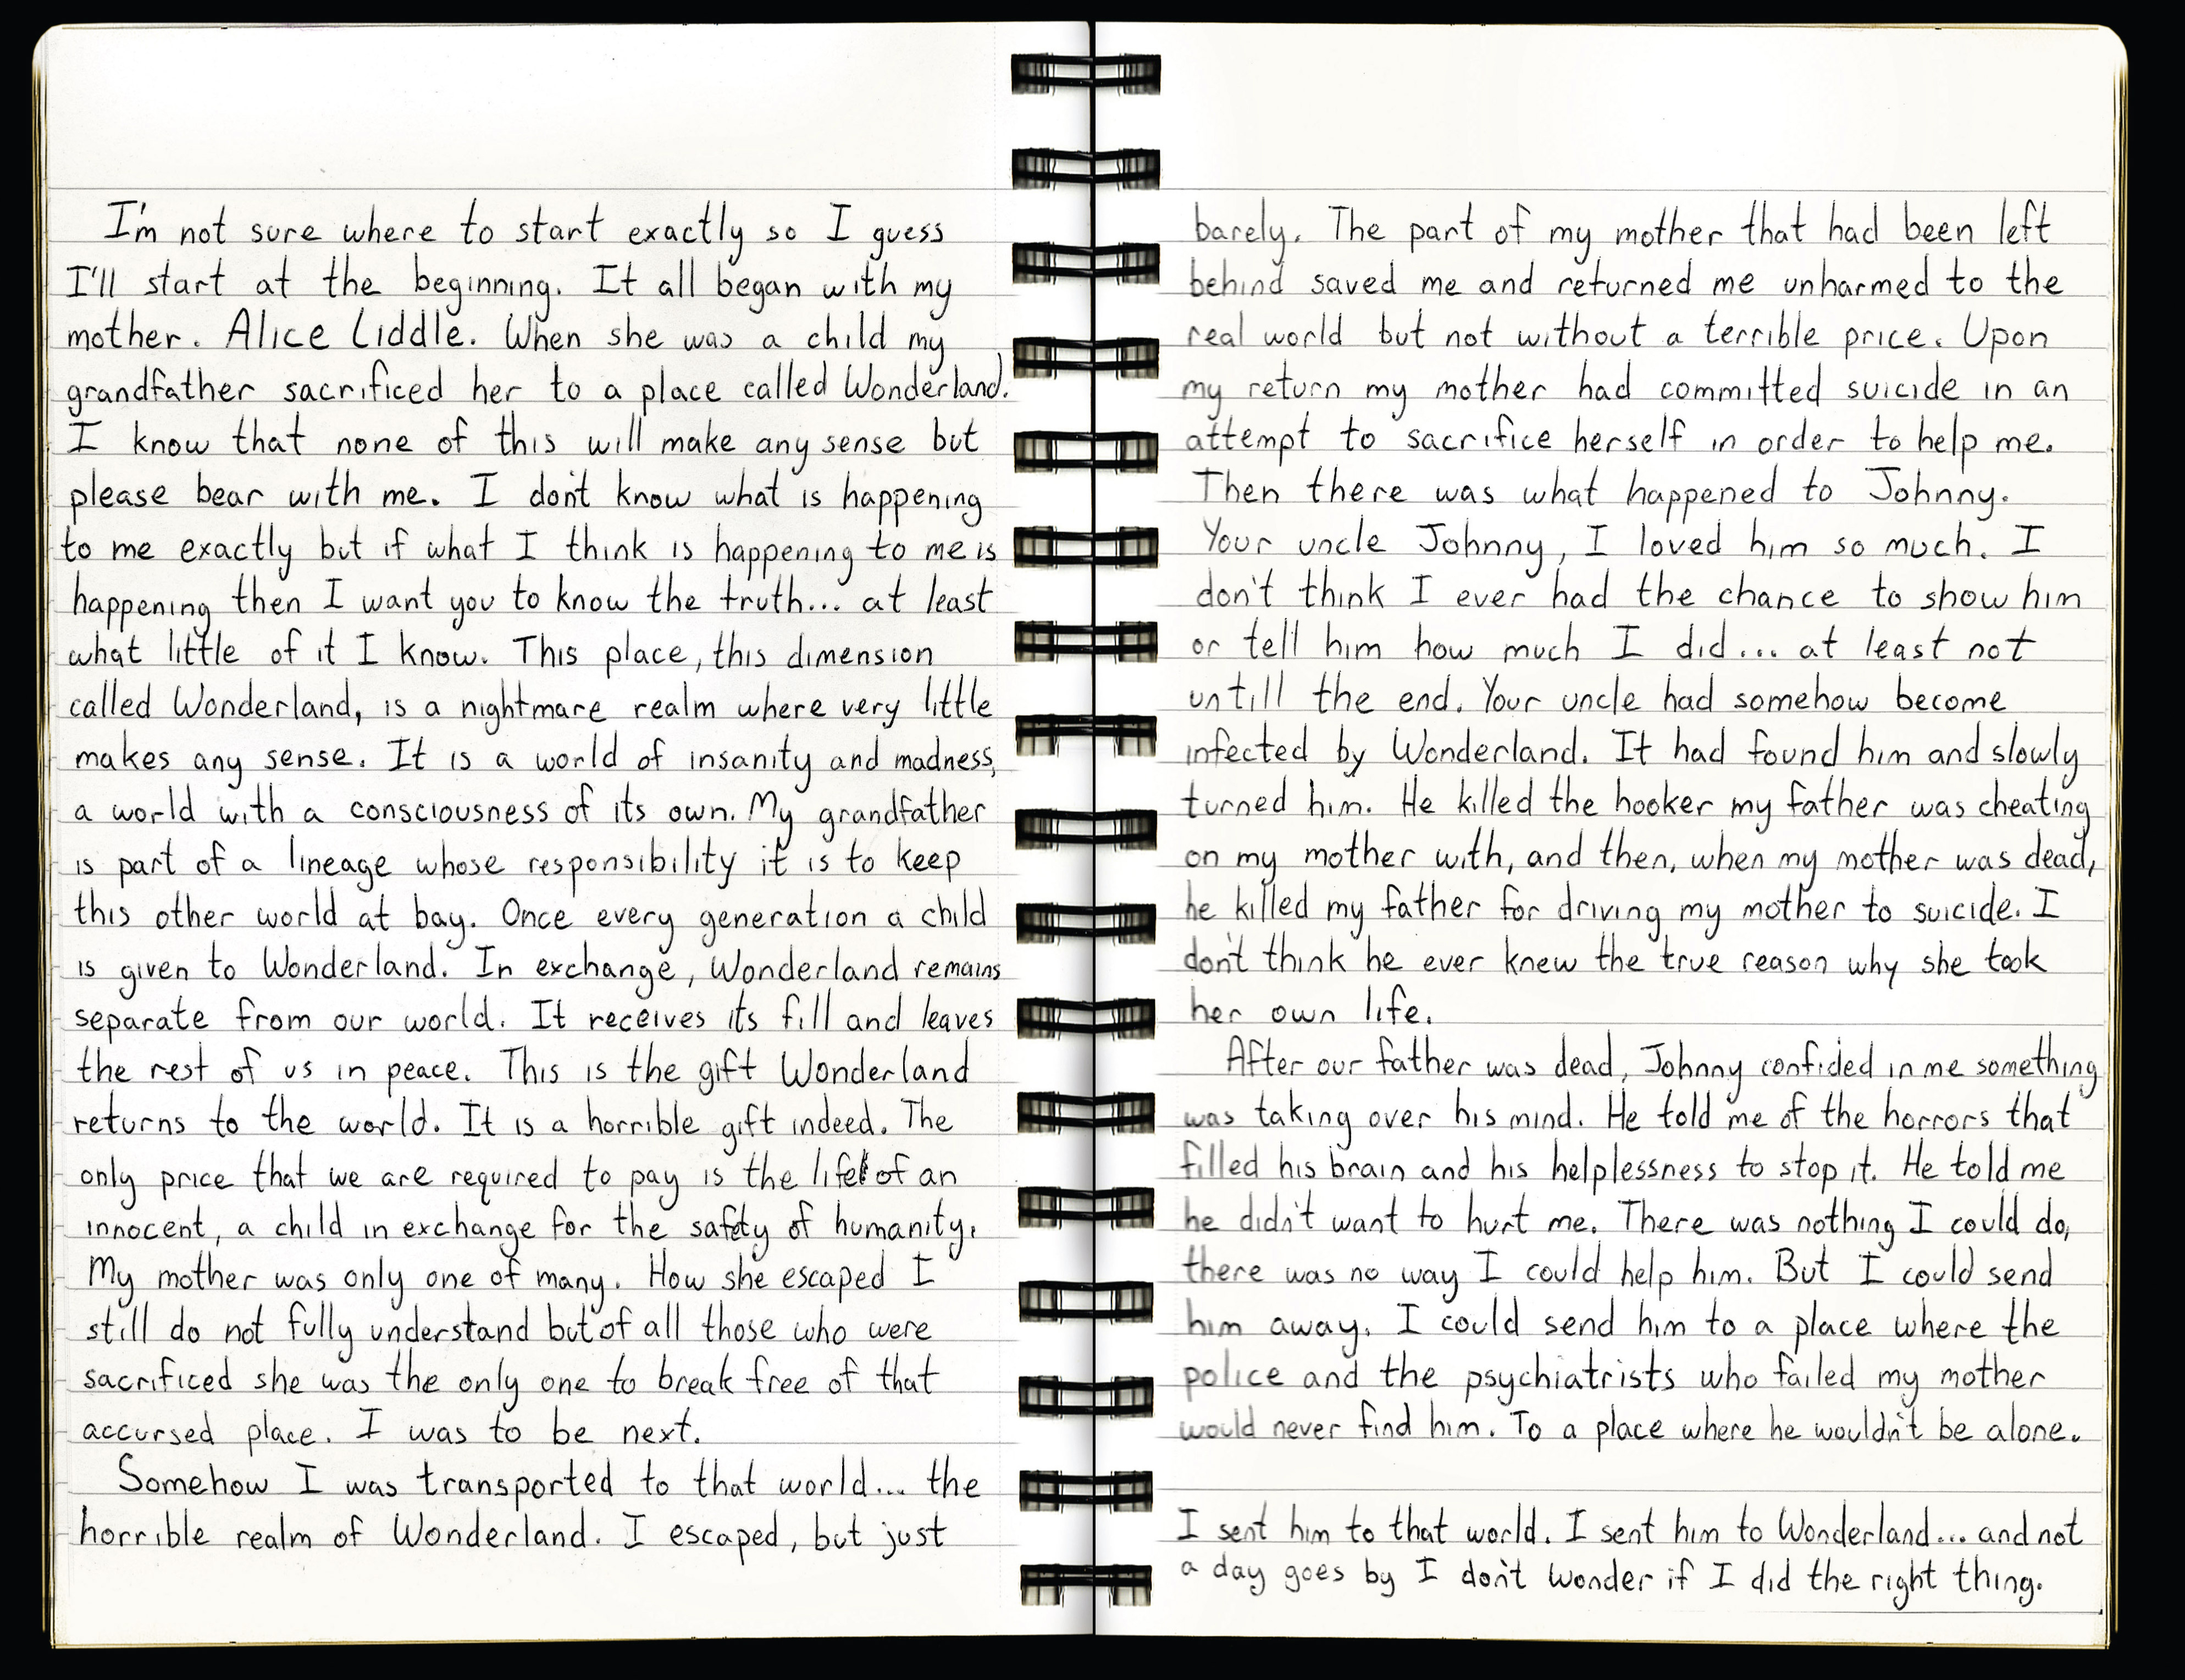 I'm not sure where to start exactly so I guess
I'll start at the beginning. It all began with my
mother. Alice Liddle. When she was a child my
grandfather sacrificed her to a place called Wonderland.
I know that none of this will make any sense but
please bear with me. I don't know what is happening
to me exactly but if what I think is happening to me is
happening then I want you to know the truth... at least
what little of it I know. This place, this dimension
called Wonderland, is a nightmare realm where very little
makes any sense. It is a world of insanity and madness,
a world with a consciousness of its own. My grandfather
is part of a lineage whose responsibility it is to keep
this other world at bay. Once every generation a child
is given to Wonderland. In exchange, Wonderland remains
separate from our world. It receives its fill and leaves
the rest of us in peace. This is the gift Wonderland
returns to the world. It is a horrible gift indeed. The
only price that we are required to pay is the life of an
innocent, a child in exchange for the safety of humanity.
My mother was only one of many. How she escaped I
still do not fully understand but of all those who were
sacrificed she was the only one to break free of that
accursed place. I was to be next.
Somehow I was transported to that world... the
horrible realm of Wonderland. I escaped, but just
barely. The part of my mother that had been left
behind saved me and returned me unharmed to the
real world but not without a terrible price. Upon
my return my mother had committed suicide in an
attempt to sacrifice herself in order to help me.
Then there was what happened to Johnny.
Your uncle Johnny, I loved him so much. I
don't think I ever had the chance to show him
or tell him how much I did... at least not
untill the end. Your uncle had somehow become
infected by Wonderland. It had found him and slowly
turned him. He killed the hooker my father was cheating
on my mother with, and then, when my mother was dead,
he killed my father for driving my mother to suicide. I
don't think he ever knew the true reason why she took
her own life.
After our father was dead, Johnny confided in me something
was taking over his mind. He told me of the horrors that
filled his brain and his helplessness to stop it. He told me
he didn't want to hurt me. There was nothing I could do,
there was no way I could help him. But I could send
him away. I could send him to a place where the
police and the psychiatrists who failed my mother
would never find him. To a place where he wouldn't be alone.
I sent him to that world. I sent him to Wonderland... and not
a day goes by I don't wonder if I did the right thing.